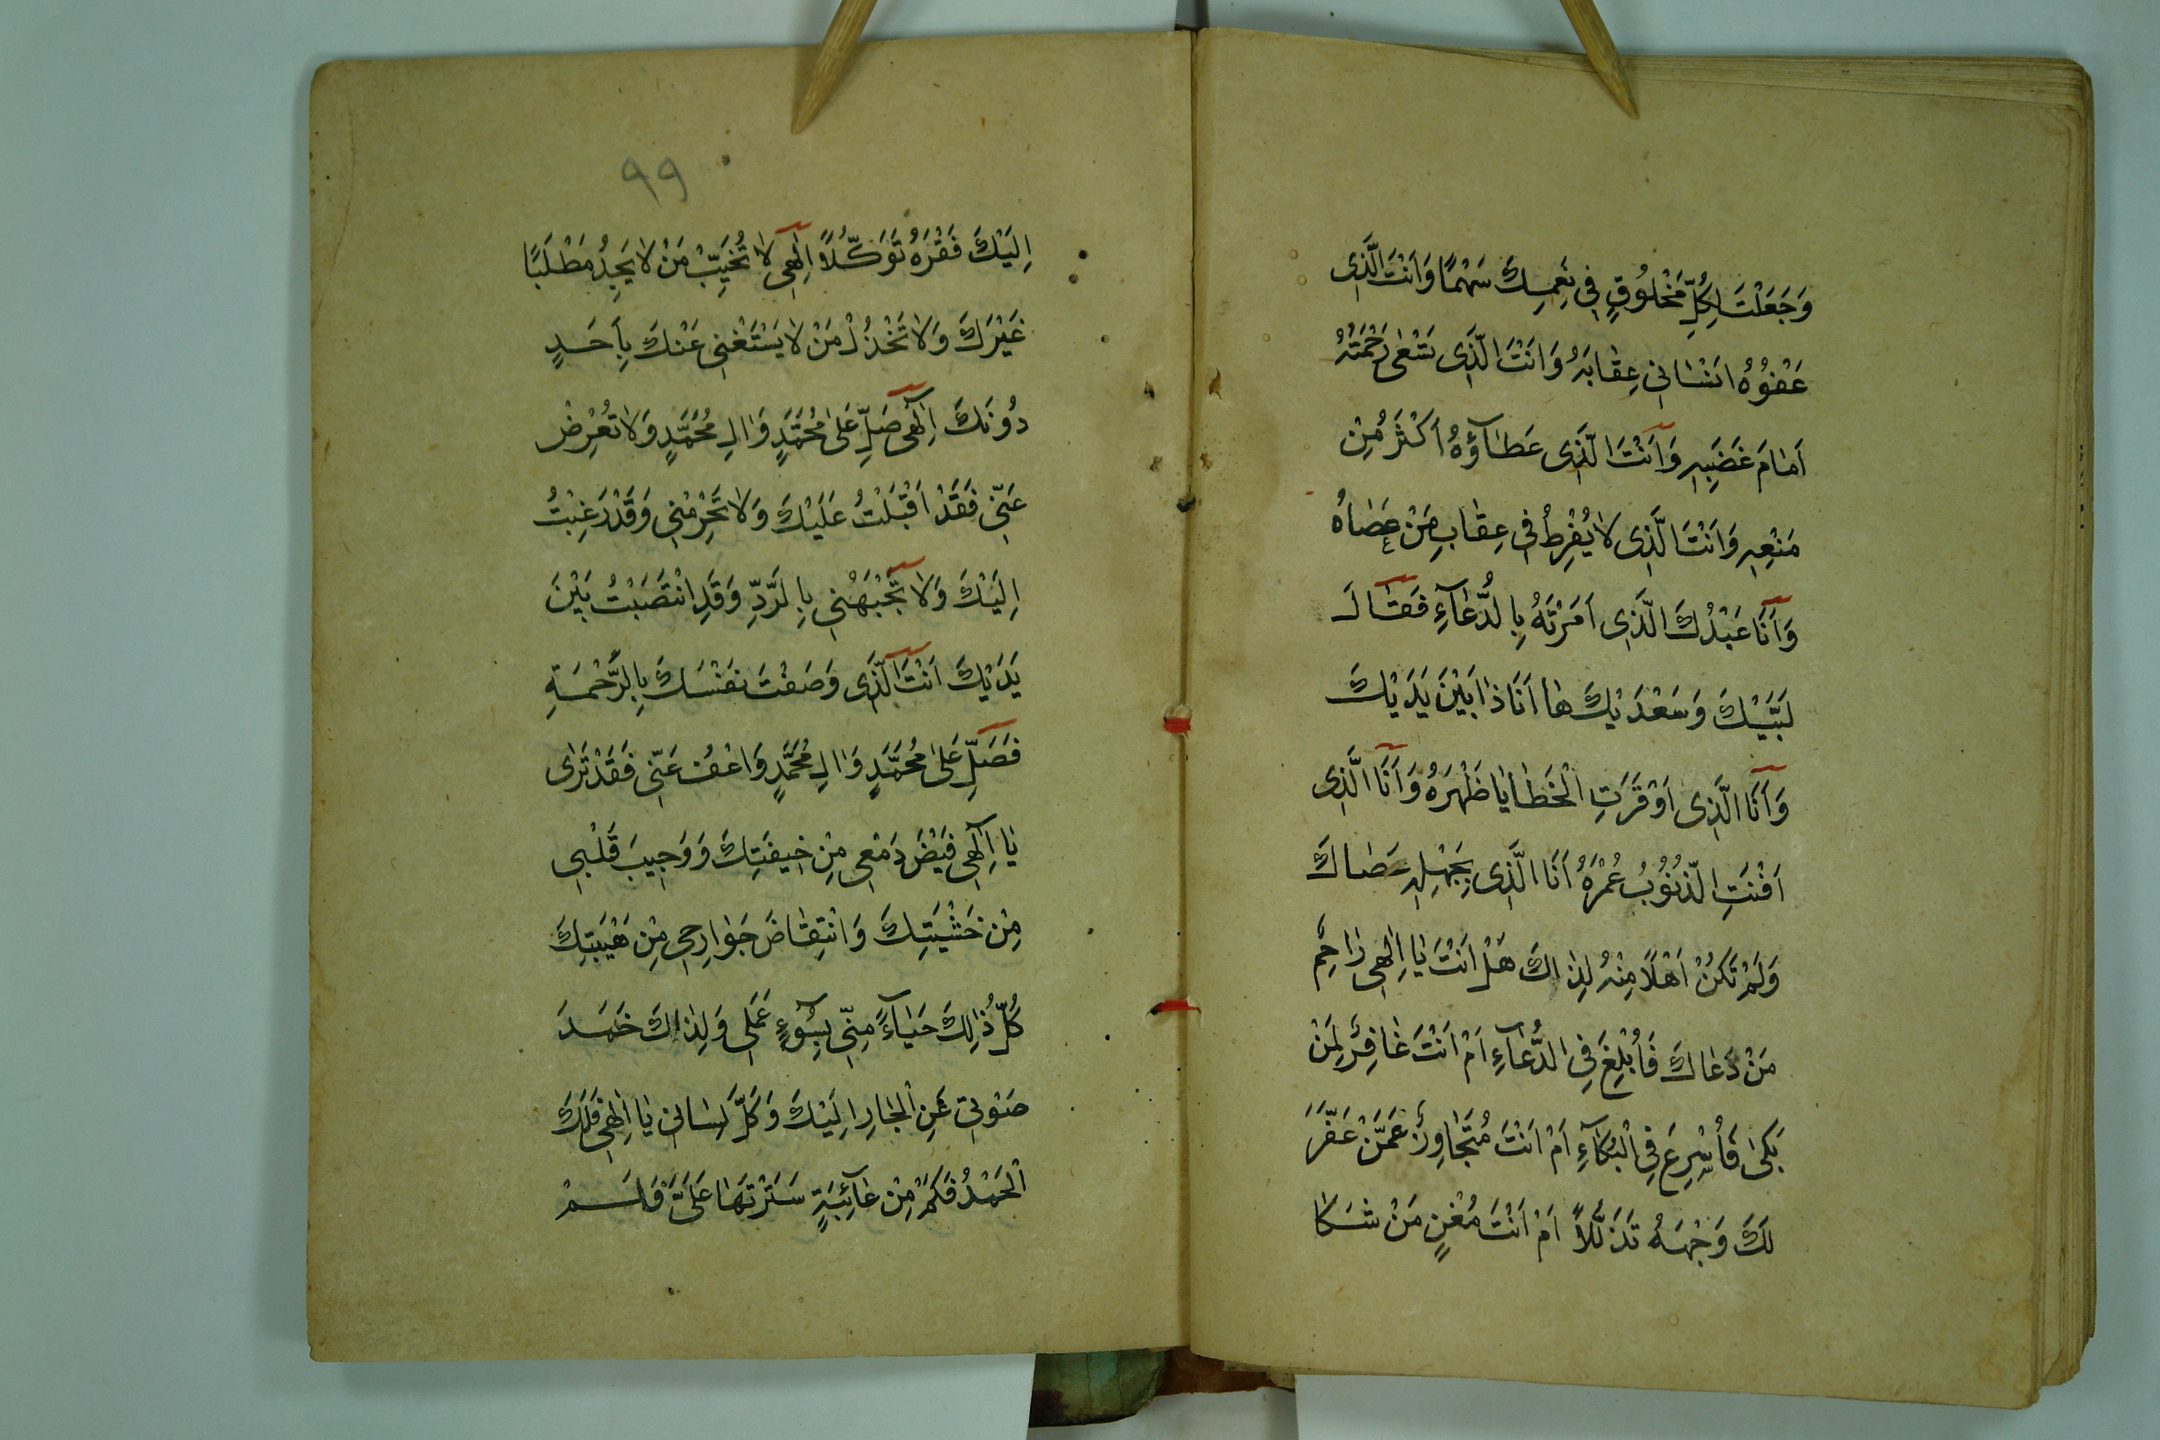 وَجَعَلْتَ لِكُلِّ مَخْلُوقٍ فِي نِعَمِكَ سَهْمًا وَاَنْتَ الَّذِي
عَفْوُهُ اَنْسَانِي عِقَابَهُ وَاَنْتَ الَّذِي تَسْعٰى رَحْمَتُهُ
اَمَامَ غَضَبِهِ وَاَنْتَ الَّذِي عَطَآؤُهُ اَكْثَرُ مِنْ
مَنْعِهِ وَاَنْتَ الَّذِي لَا يُفْرِطُ فِي عِقَابِ مَنْ عَصَاهُ
وَاَنَا عَبْدُكَ الَّذِي اَمَرْتَهُ بِالدُّعَآءِ فَقَالَ
لَبَّيْكَ وَسَعْدَيْكَ هَا اَنَا ذَا بَيْنَ يَدَيْكَ
وَاَنَا الَّذِي اَوْقَرَتِ الْخَطَايَا ظَهْرَهُ وَاَنَا الَّذِي
اَفْنَتِ الذُّنُوبُ عُمْرَهُ اَنَا الَّذِي بِجَهْلِهِ عَصَاكَ
وَلَمْ تَكُنْ اَهْلًا مِنْهُ لِذَاكَ هَلْ اَنْتَ يَا اِلٰهِي رَاحِمٌ
مَنْ دَعَاكَ فَاُبْلِغَ فِي الدُّعَآءِ اَمْ اَنْتَ غَافِرٌ لِمَنْ
بَكٰى فَاُسْرِعَ فِي الْبُكَآءِ اَمْ اَنْتَ مُتَجَاوِزٌ عَمَّنْ عَفَّرَ
لَكَ وَجْهَهُ تَذَلُّلًا اَمْ اَنْتَ مُغْنٍ مَنْ شَكَا
٩٩
اِلَيْكَ فَقْرَهُ تَوَكُّلًا اِلٰهِي لَا تُخَيِّبْ مَنْ لَا يَجِدُ مَطْلَبًا
غَيْرَكَ وَلَا تَخْذُلْ مَنْ لَا يَسْتَغْنِي عَنْكَ بِاَحَدٍ
دُونَكَ اِلٰهِي صَلِّ عَلٰى مُحَمَّدٍ وَالِ مُحَمَّدٍ وَلَا تُعْرِضْ
عَنِّي فَقَدْ اَقْبَلْتُ عَلَيْكَ وَلَا تَحْرِمْنِي وَقَدْ رَغِبْتُ
اِلَيْكَ وَلَا تَجْبَهْنِي بِالرَّدِّ وَقَدِ انْتَصَبْتُ بَيْنَ
يَدَيْكَ اَنْتَ الَّذِي وَصَفْتَ نَفْسَكَ بِالرَّحْمَةِ
فَصَلِّ عَلٰى مُحَمَّدٍ وَالِ مُحَمَّدٍ وَاعْفُ عَنِّي فَقَدْ تَرٰى
يَا اِلٰهِي فَيْضَ دَمْعِي مِنْ خِيفَتِكَ وَوَجِيبَ قَلْبِي
مِنْ خَشْيَتِكَ وَانْتِقَاضَ جَوَارِحِي مِنْ هَيْبَتِكَ
كُلُّ ذٰلِكَ حَيَاءً مِنِّي بِسُوٓءِ عَمَلِي وَلِذَاكَ خَمَدَ
صَوْتِي عَنِ الْجَارِ اِلَيْكَ وَكَلَّ لِسَانِي يَا اِلٰهِي فَلَكَ
الْحَمْدُ فَكَمْ مِنْ عَآئِبَةٍ سَتَرْتَهَا عَلَيَّ فَلَمْ